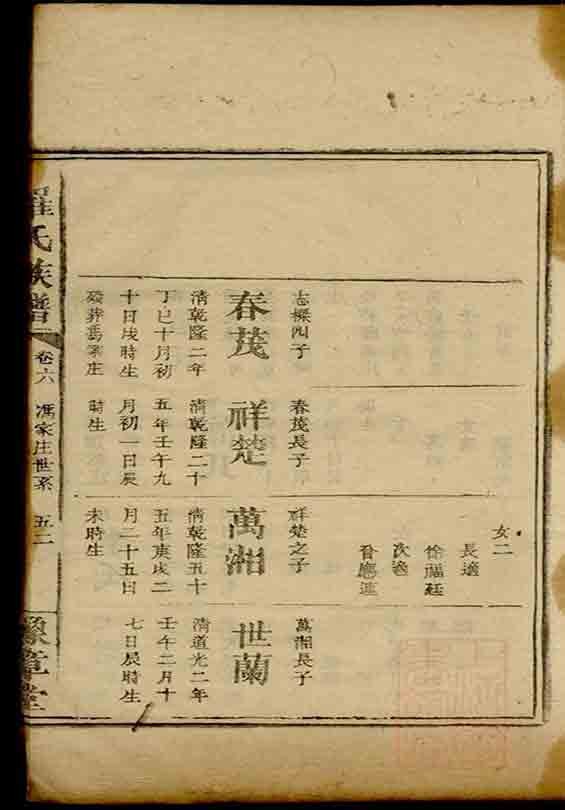 志樑四子
春茂
清乾隆二年
丁巳十月初
十日戌時生
歿葬馮家庄
春茂長子
祥楚
清乾隆二十
五年壬午九
月初一日辰
時生
女二
長適
徐福廷
次適
應連
祥楚之子
萬湘
清乾隆五十
五年庚戌二
月二十五日
未時生
萬湘長子
世蘭
清道光二年
壬午二月十
七日辰時生
羅氏族譜
卷六
馮家庄世系
五二
豫章堂